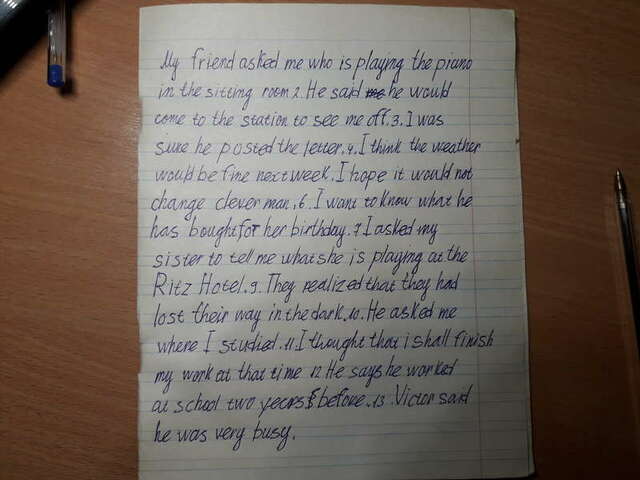 My friend asked me who is playing the piano
in the sitting room 2. He said me he would
come to the station to see me off. 3. I was
sure he posted the letter. 4. I think the weather
would be fine next week. I hope it would not
change clever man. 6. I want to know what he
has bought for her birthday. 7 I asked my
sister to tell me what she is playing at the
Ritz Hotel. 9. They realized that they had
lost their way in the dark. 10. He asked me
where I studied. 11 I thought that i shall finish
my work at that time 12 He says he worked
at school two years before. 13 Victor said
he was very busy.